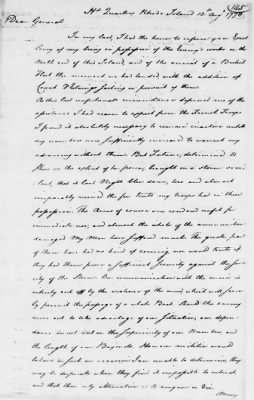 Hd. Quarters Rhode Island 13th Aug. 1778
145
Dear General
In my last, I had the honor to inform your Excel
lency of my being in possession of the Enemy's works on the
North end of this Island, and of the arrival of a British
Fleet the moment we had landed with the addition of
Count D'Estaings sailing in pursuit of them
As this last unfortunate manœuvre deprived me of the
assistance I had reason to expect from the French Troops
I found it absolutely necessary to remain inactive untill
my numbers were sufficiently increased to warrant my
advancing without them. But Fortune, determined to
us the extent of her frowns, brought on a storm
that last Night blew down, tore and almost
ruined the few tents my troops had in their
possession The Arms of course were rendered useful for
immediate use, and almost the whole of the ammunition
damaged My Men have suffered much the greater part
of them have had no kind of covering, nor would tents if
they had them prove a sufficient security against the
of the Storm the communication with the main is
entirely cut off by the violence of the wind which will
by permit the passage of a whale Boat Should the enemy
move out to take advantage of our Situation, our depen
dance must rest on the superiority of our Numbers, and
the length of our Bayonets. How our militia would
behave in such an occasion I am unable to determine, they
may be desperate when they find it impossible to retreat
and that their only alternative is to conquer or die.
Many